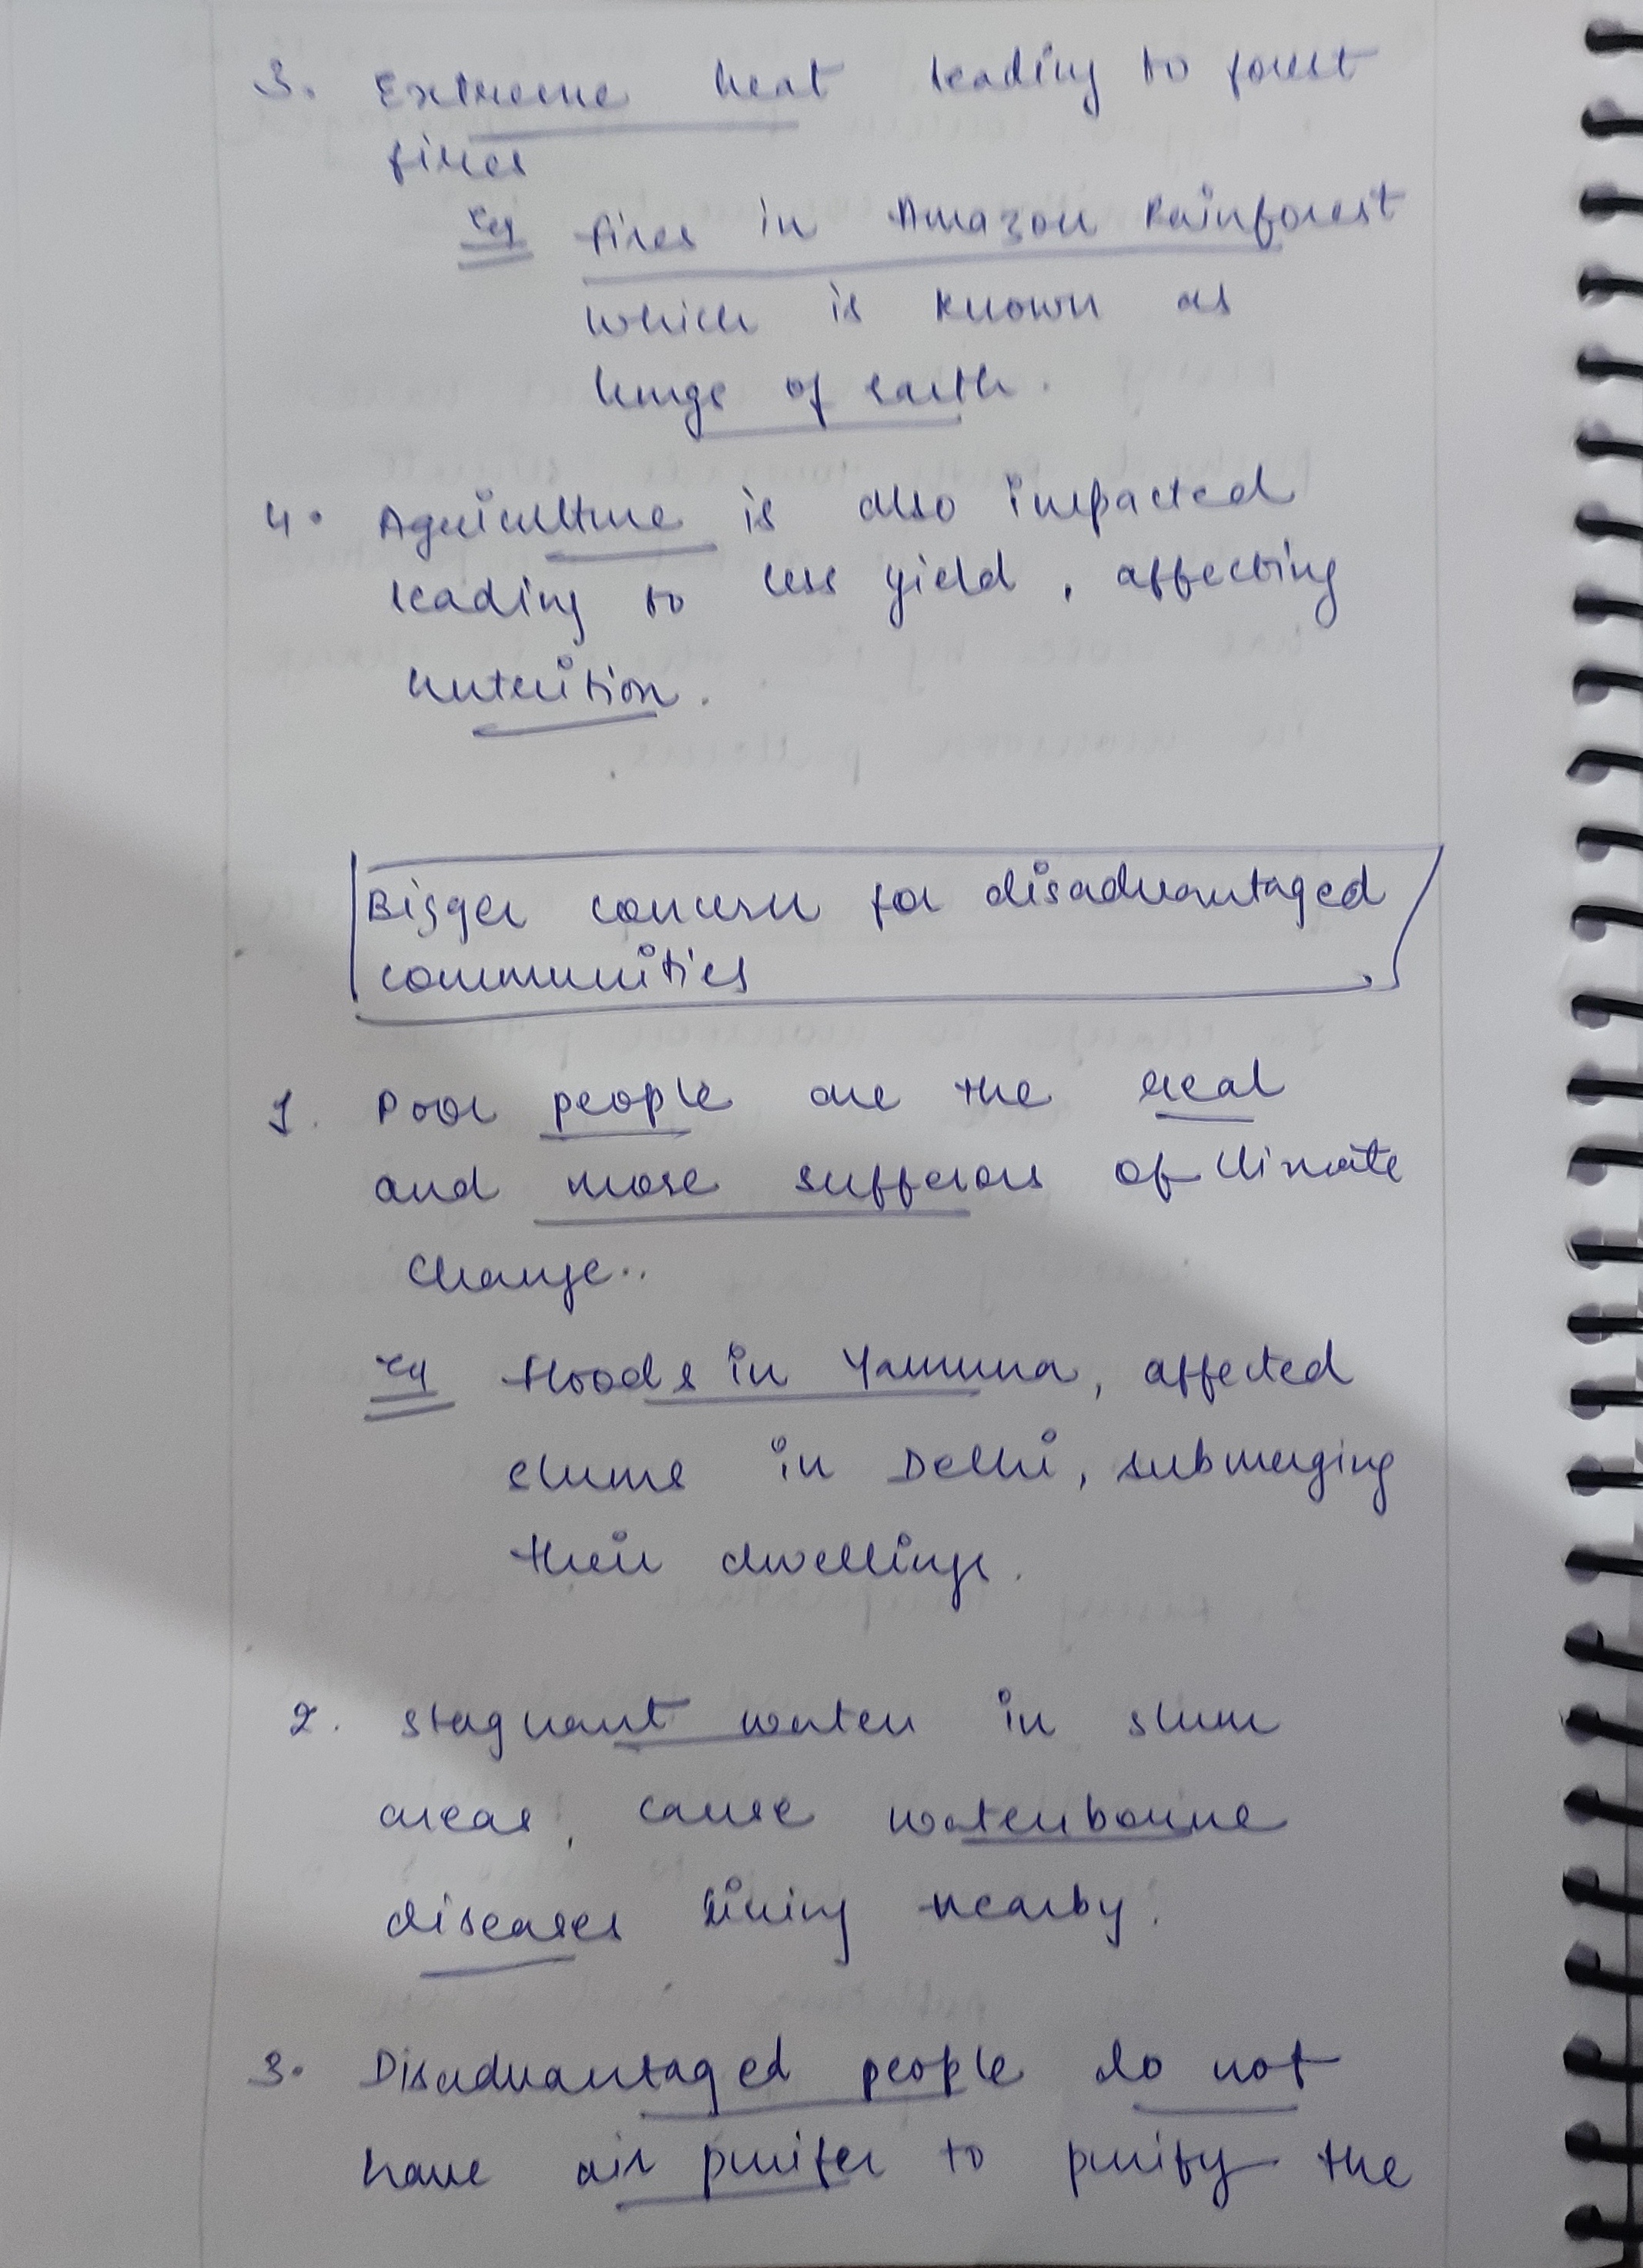 3. Extreme heat leading to forest
fires
Eg fires in Amazon Rainforest
which is known as
lungs of earth.
4. Agriculture is also impacted
leading to less yield, affecting
nutrition.
Bigger concern for disadvantaged
communities
1. Poor people are the real
and more sufferors of climate
change..
Eg floods in Yamuna, affected
slums in Delhi, submerging
their dwellings.
2. stagnant water in slum
areas, cause waterbourne
diseases living nearby.
3. Disadvantaged people do not
have air purifer to purify the